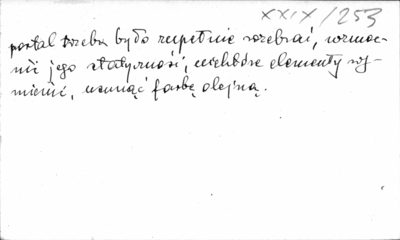 XXIX/253
portal trzeba było zupełnie rozebrać, wzmoc-
nić jego statyczność, niektóre elementy wy-
mienić, usunąć farbę olejną.